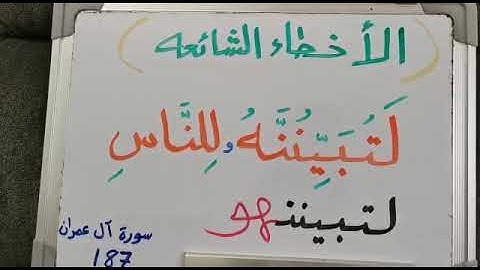 (الأخطاء الشائعه)
لَتُبَيِّنُنَّهُ و لِلنَّاسِ
لتبيننهو
سورة آل عمران
187